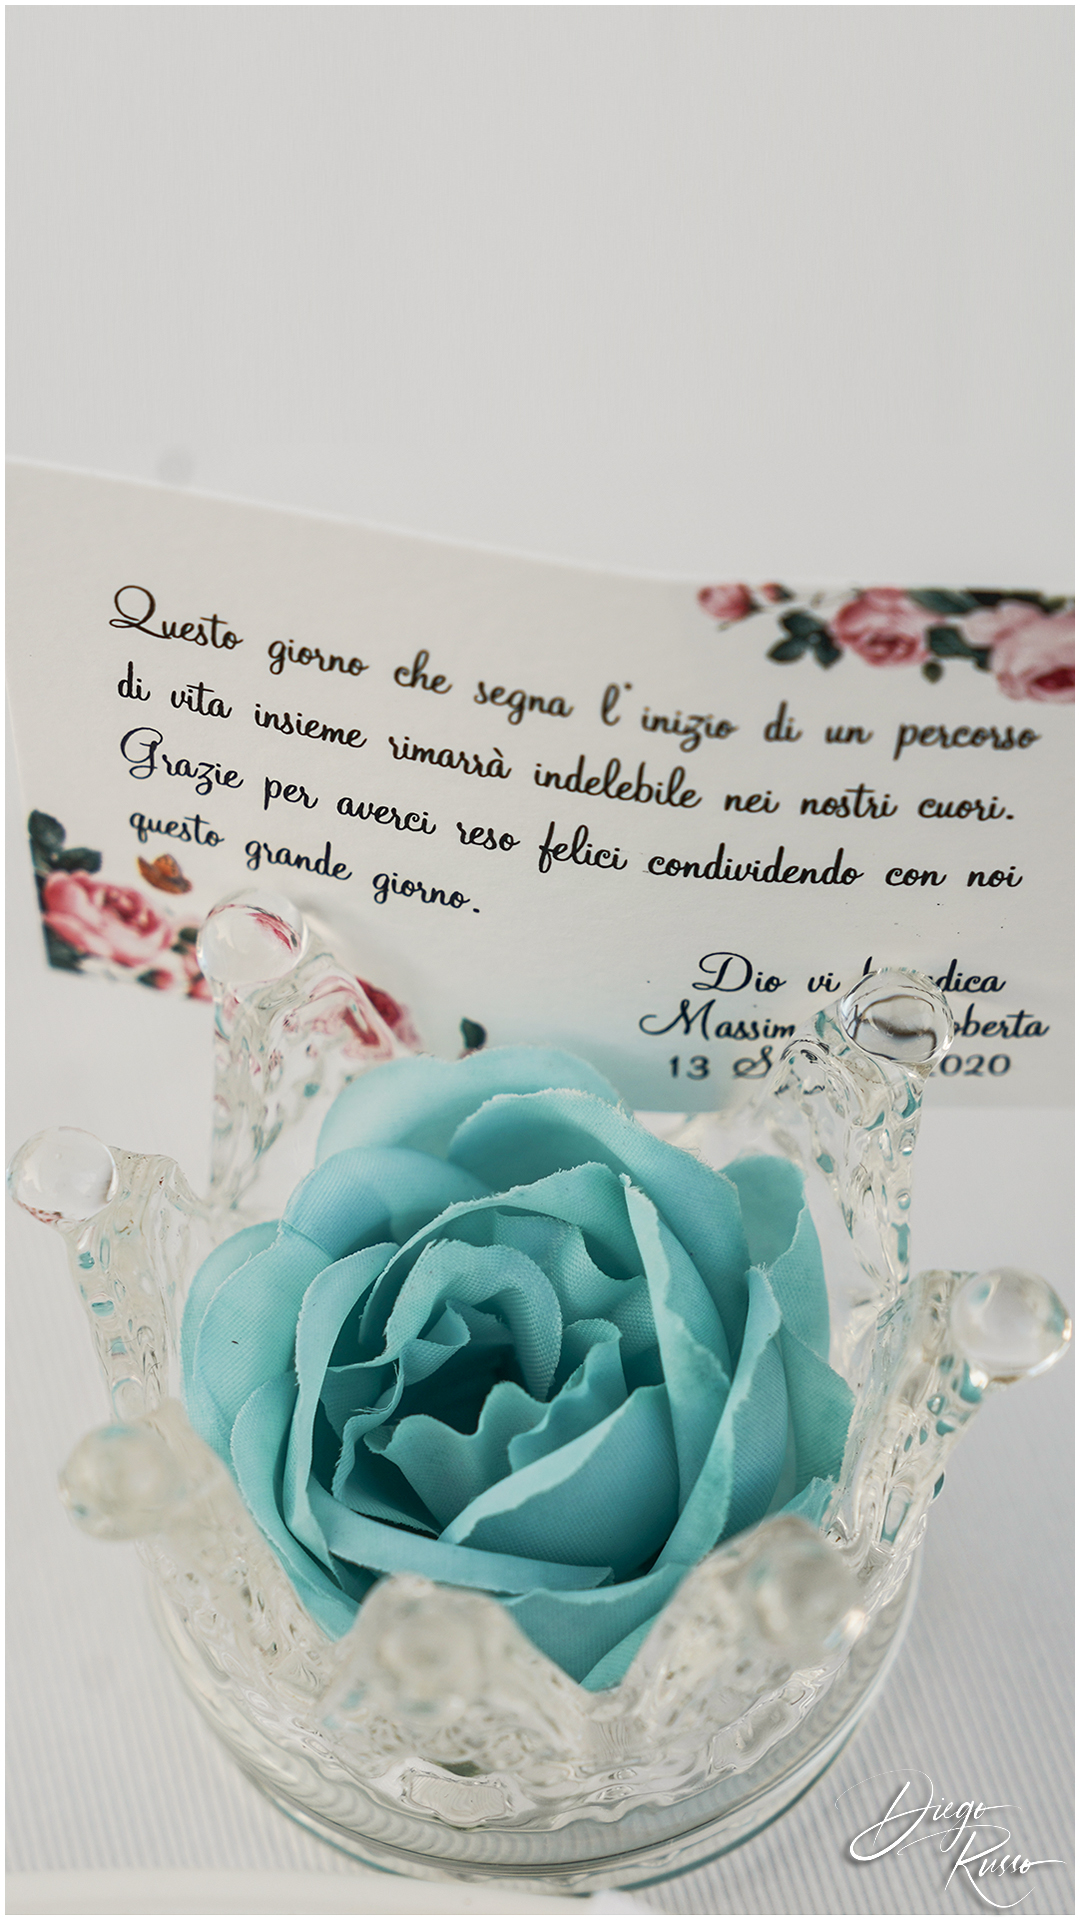 Questo giorno che segna l'inizio di un percorso
di vita insieme rimarrà indelebile nei nostri cuori.
Grazie per averci reso felici condividendo con noi
questo grande giorno.
Dio vi
13
Diego
Russo